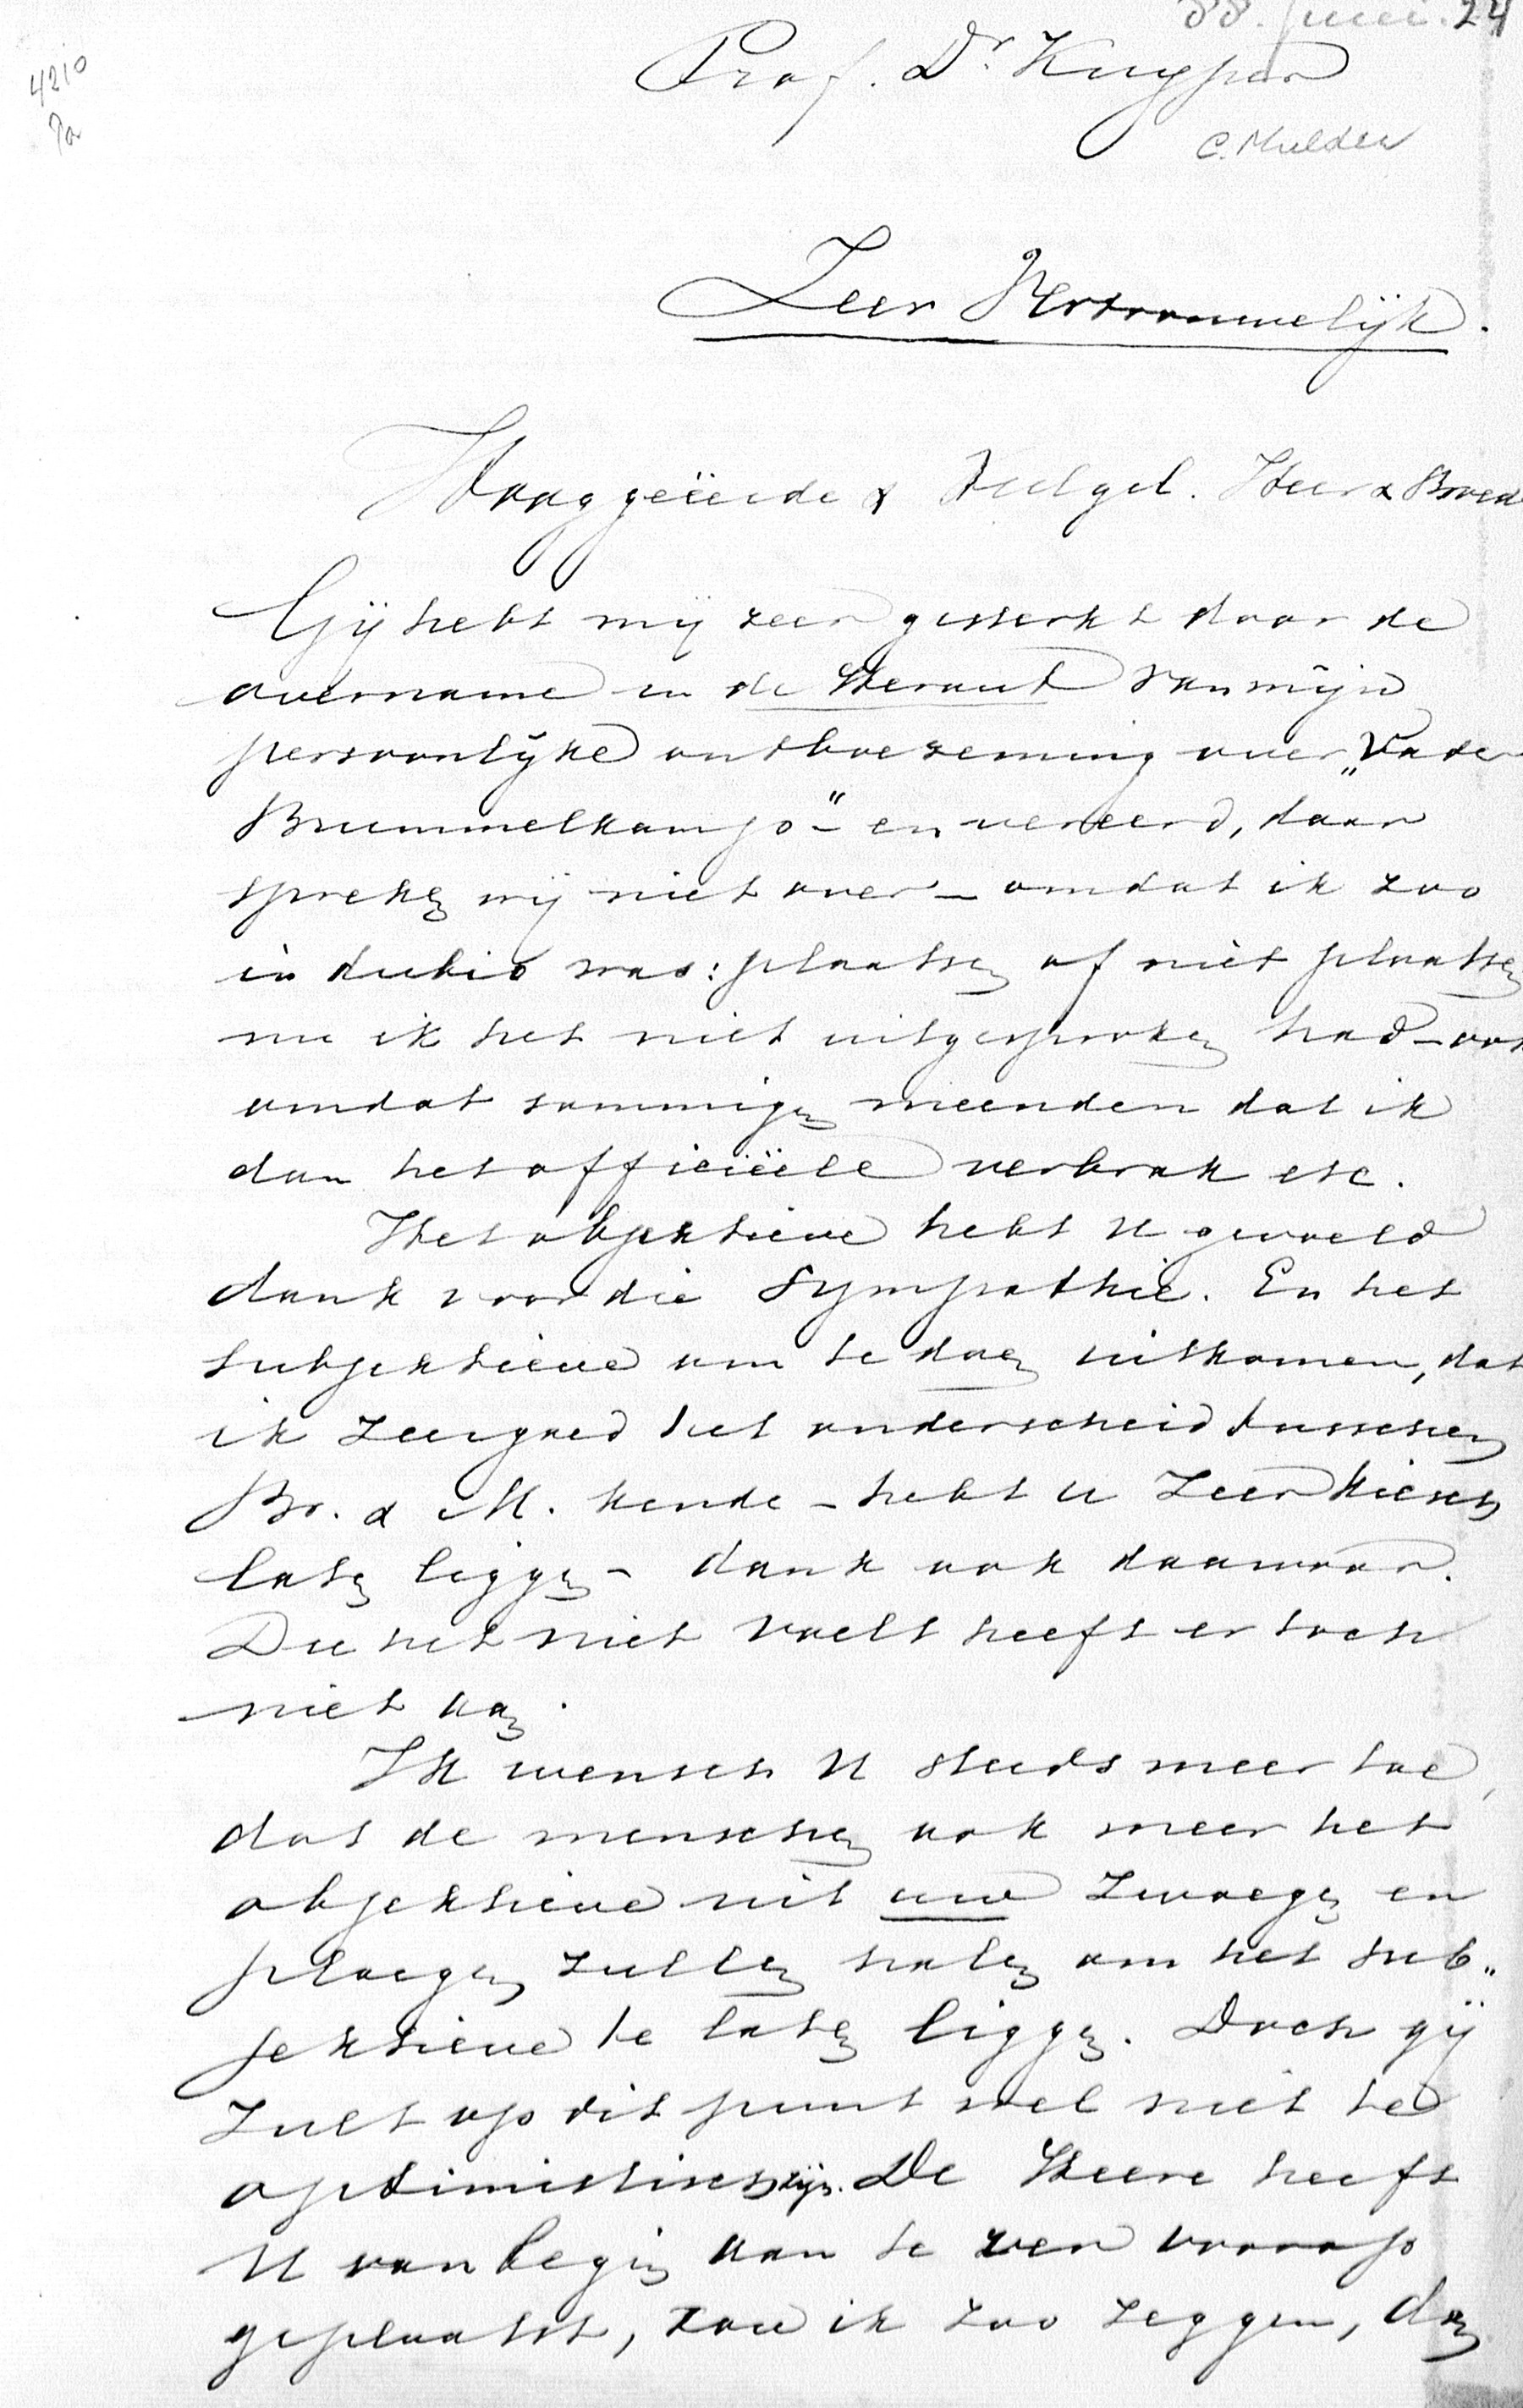 88. Juni. 24
4210
Pa
Prof. Dr. Kuyper
C. Mulder
Zeer Vertrouwelijk.
Hooggeëerde & Veelgel. Heer & Broed
Gij hebt mij zeer gesterkt door de
overname in de Heraut van mijn
persoonlijke ontboezeming over „Vader
Brummelkamp" – en vereerd, daar
spreken wij niet over – omdat ik zoo
in dubio was: plaatsen of niet plaatsen
nu ik het niet uitgesproken had – ook
omdat sommigen meenden dat ik
dan het officiëele verbrak etc.
Het objektieve hebt U gevoeld
dank voor die Sympathie. En het
subjektieve om te doen uitkomen, dat
ik zeer goed het onderscheid tusschen
Br. & M. kende – hebt u zeer kiesch
laten liggen – dank ook daarvoor.
Die het niet voelt heeft er toch
niet aan.
Ik wensch U steeds meer toe,
dat de menschen ook meer het
objektieve uit uw zwoegen en
ploegen zullen halen om het sub„
jektieve te laten liggen. Doch gij
zult op dit punt wel niet te
optimistisch zijn. De Heere heeft
U van begin aan te zeer voorop
geplaatst, zou ik zoo zeggen, dan